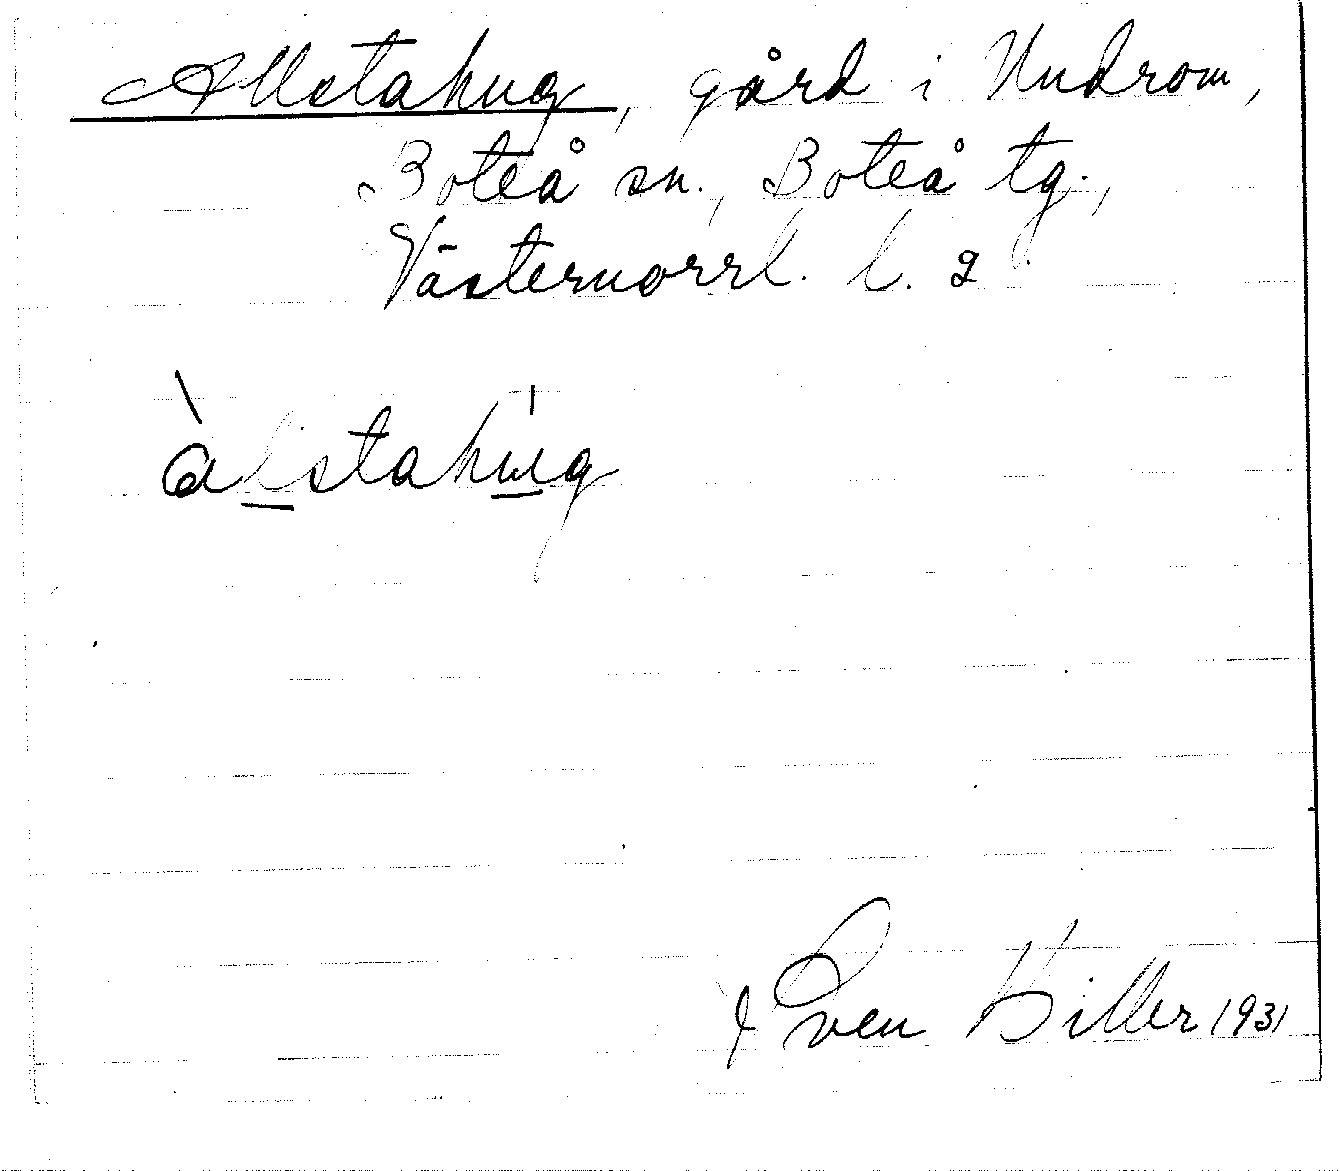 Allstahug, gård i Undrom,
Boteå sn., Boteå tg.,
Västernorrl. l.
àlstahug
Sven Hiller 1931